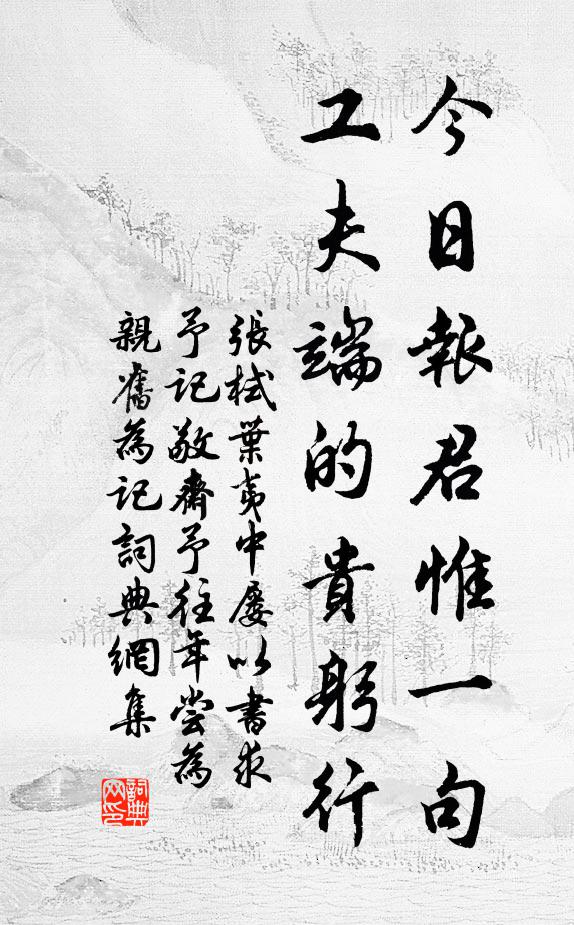 今日報君惟一句
工夫端的貴躬行
張栻葉夷中屢以書求
予記敬齋予往年嘗為
親舊為記詞典網集
詞典網印